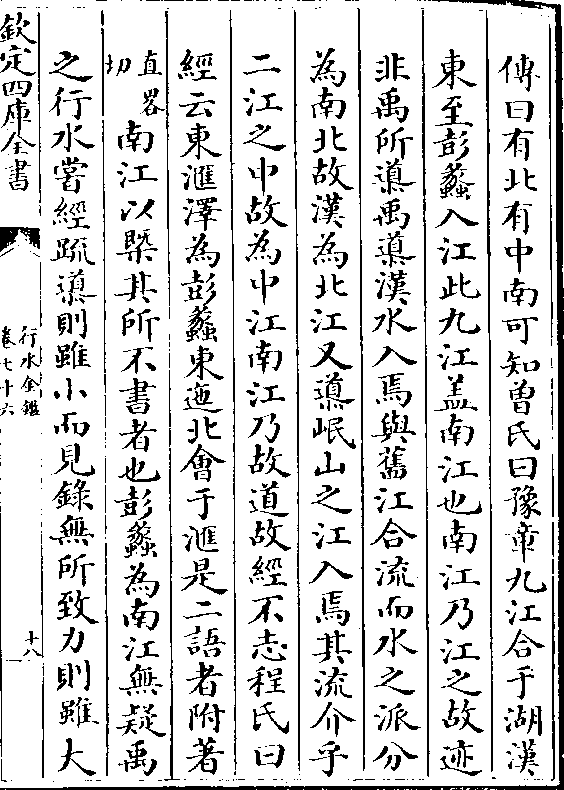 傳曰有北有中南可知曽氏曰豫章九江合于湖漢
東至彭蠡入江此九江盖南江也南江乃江之故迹
非禹所導禹導漢水入焉與舊江合流而水之派分
為南北故漢為北江又導岷山之江入焉其流介乎
二江之中故為中江南江乃故道故經不志程氏曰
經云東滙澤為彭蠡東迤北會于滙是二語者附著
直畧
切
南江以槩其所不書者也彭蠡為南江無疑禹
之行水嘗經疏導則雖小而見錄無所致力則雖大
欽定四庫全書
行水金鑑
卷七十六
十八